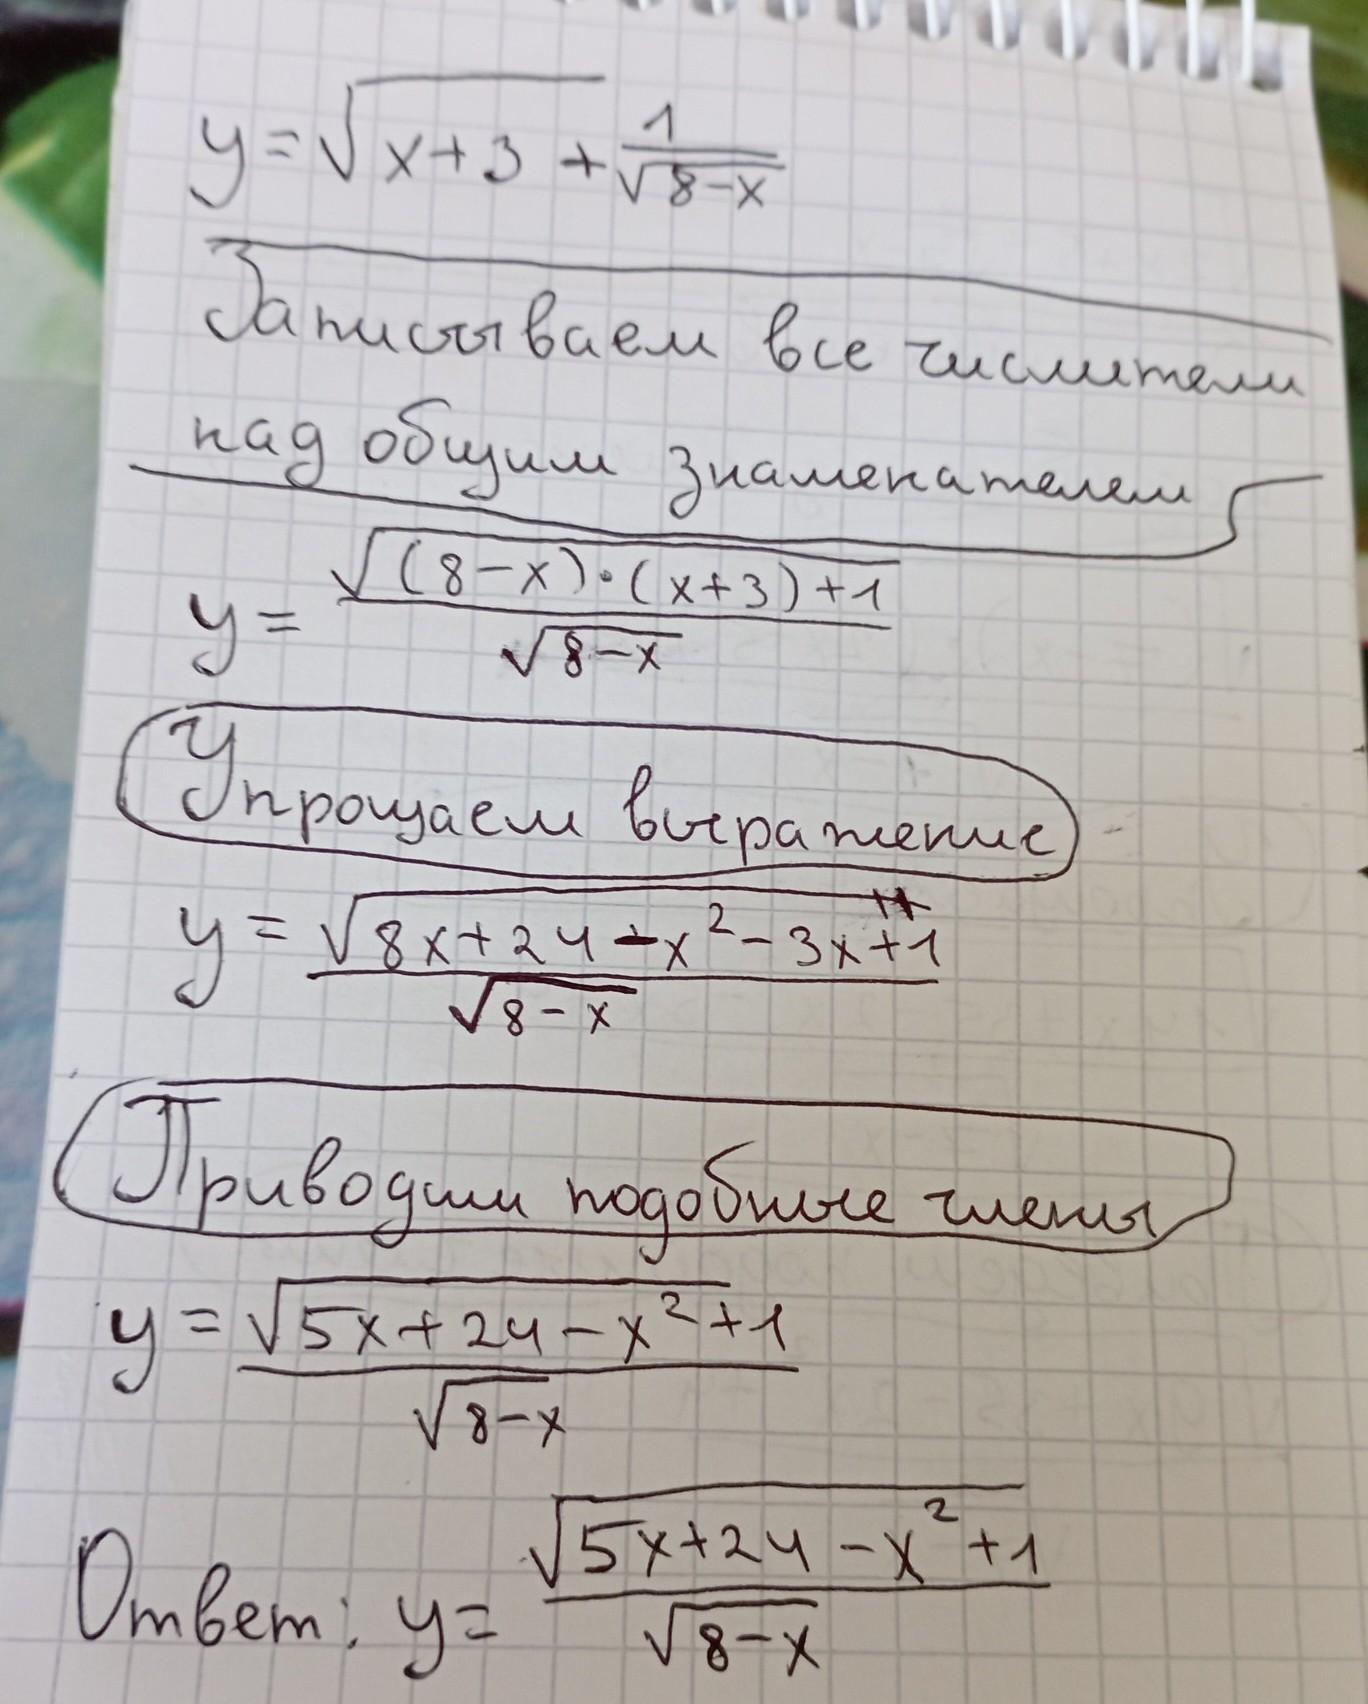 y = √x+3 + 1/√8-x
Записываем все числители
над общим знаменателем
y = √(8-x)·(x+3)+1 / √8-x
Упрощаем выражение
y = √8x+24-x²-3x+1 / √8-x
Приводим подобные члены
y = √5x+24-x²+1 / √8-x
Ответ: y = √5x+24-x²+1 / √8-x